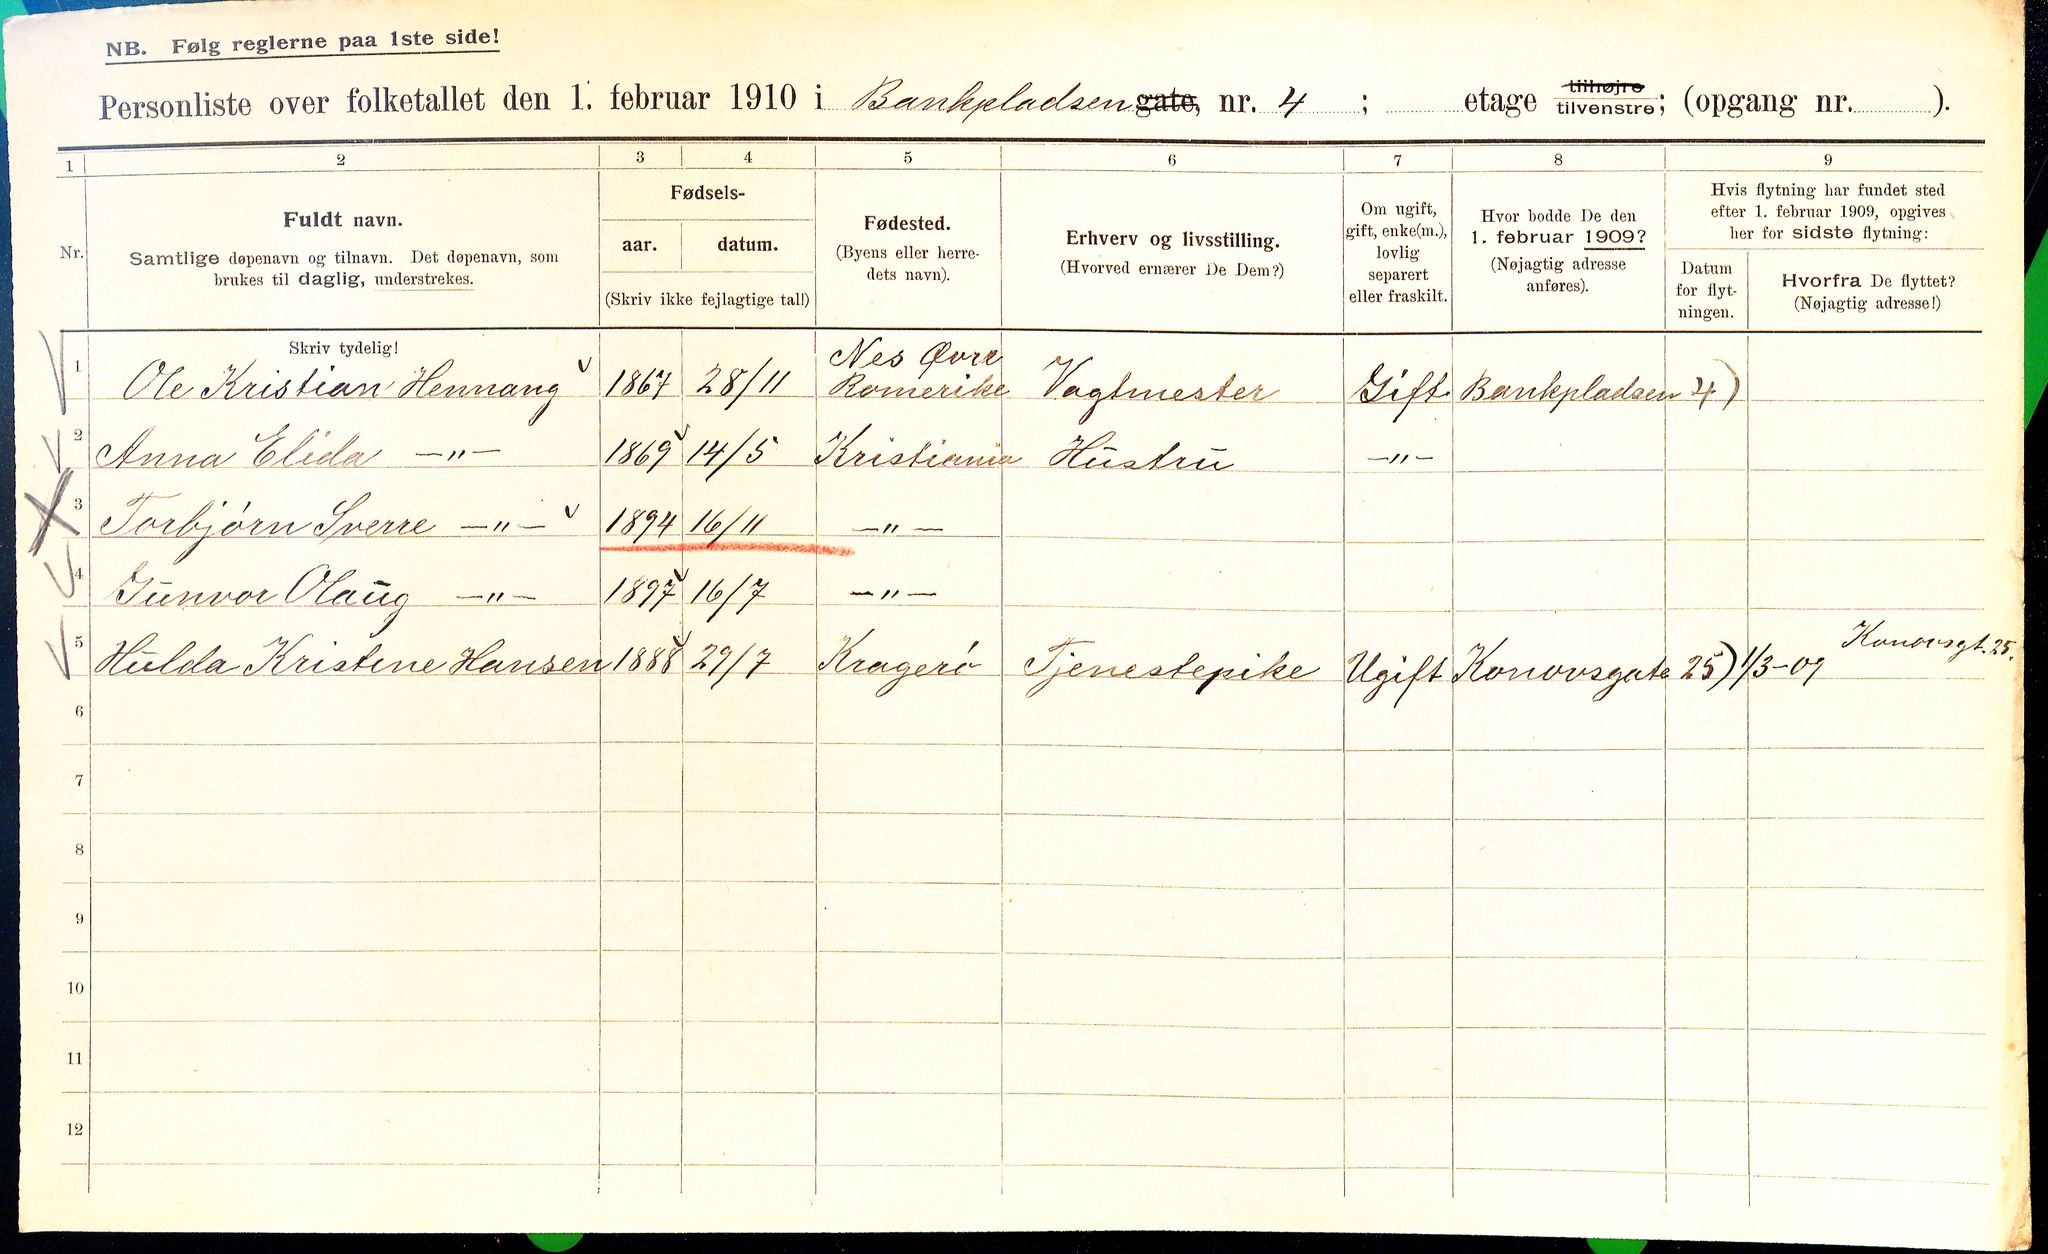 NB. Følg reglerne paa 1ste side!
Personliste over folketallet den 1. februar 1910 i Bankpladsen gate, nr. 4 ; etage tilhøjre tilvenstre; (opgang nr. ).
1 2 3 4 5 6 7 8 9
Nr.
Fuldt navn.
Samtlige døpenavn og tilnavn. Det døpenavn, som
brukes til daglig, understrekes.
Fødsels-
aar. datum.
(Skriv ikke fejlagtige tal!)
Fødested.
(Byens eller herre-
dets navn).
Erhverv og livsstilling.
(Hvorved ernærer De Dem?)
Om ugift,
gift, enke(m.),
lovlig
separert
eller fraskilt.
Hvor bodde De den
1. februar 1909?
(Nøjagtig adresse
anføres).
Hvis flytning har fundet sted
efter 1. februar 1909, opgives
her for sidste flytning:
Datum
for flyt-
ningen.
Hvorfra De flyttet?
(Nøjagtig adresse!)
Skriv tydelig!
1 Ole Kristian Hennang 1867 28/11 Nes Øvre Romerike Vagtmester Gift Bankpladsen 4)
2 Anna Elida —"— 1869 14/5 Kristiania Hustru —"—
3 Torbjørn Sverre —"— 1894 16/11 —"—
4 Gunvor Olaug —"— 1897 16/7 —"—
5 Hulda Kristine Hansen 1888 29/7 Kragerø Tjenestepike Ugift Konovsgate 25) 1/3-09 Konovsgt. 25.
6
7
8
9
10
11
12